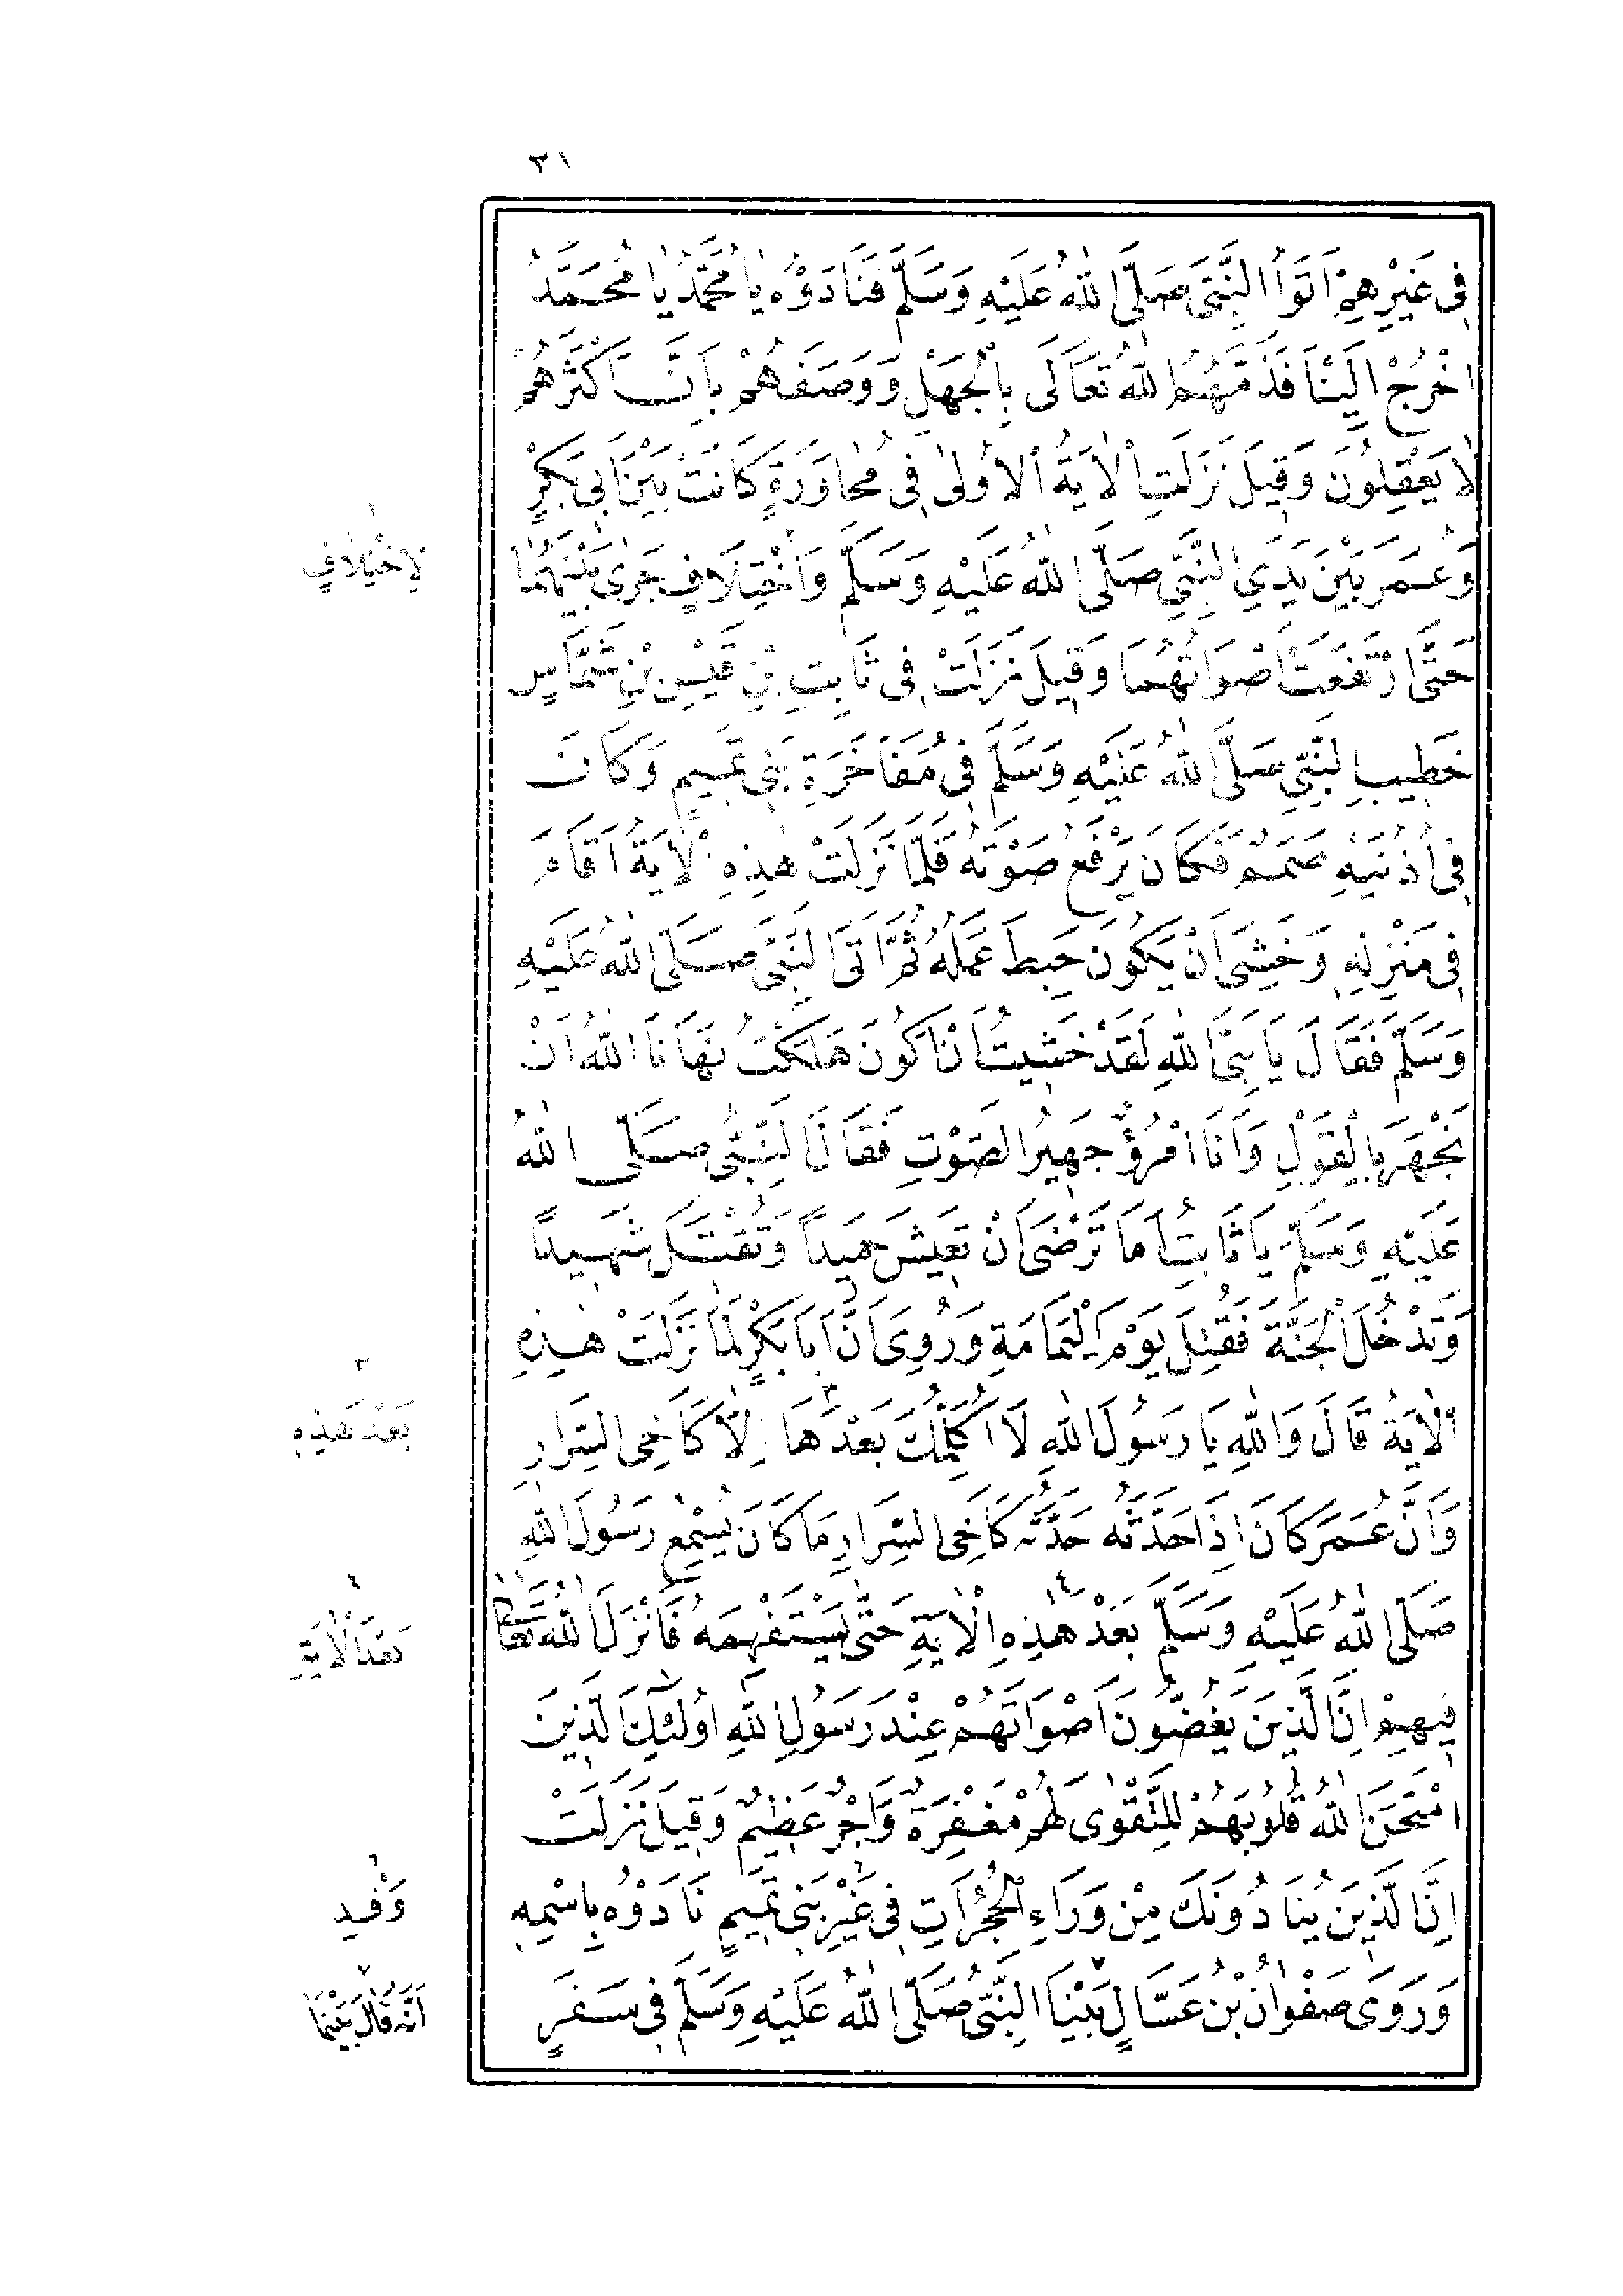 ٣١
فِى غَيْرِهِمْ اَتَوُا النَّبِىَّ صَلَّى اللهُ عَلَيْهِ وَسَلَّمَ فَنَادَوْهُ يَا مُحَمَّدُ يَا مُحَمَّدُ
اخْرُجْ اِلَيْنَا فَذَمَّهُمُ اللهُ تَعَالَى بِالْجَهْلِ وَوَصَفَهُمْ بِاَنَّ اَكْثَرَهُمْ
لَا يَعْقِلُونَ وَقِيلَ نَزَلَتِ الْاٰيَةُ الْاُولٰى فِى مُحَاوَرَةٍ كَانَتْ بَيْنَ اَبِى بَكْرٍ
وَعُمَرَ بَيْنَ يَدَىِ النَّبِىِّ صَلَّى اللهُ عَلَيْهِ وَسَلَّمَ وَاخْتِلَافٍ جَرٰى بَيْنَهُمَا
حَتَّى ارْتَفَعَتْ اَصْوَاتُهُمَا وَقِيلَ نَزَلَتْ فِى ثَابِتِ بْنِ قَيْسِ بْنِ شَمَّاسٍ
خَطِيبِ النَّبِىِّ صَلَّى اللهُ عَلَيْهِ وَسَلَّمَ فِى مُفَاخَرَةِ بَنِى تَمِيمٍ وَكَانَ
فِى اُذُنَيْهِ صَمَمٌ فَكَانَ يَرْفَعُ صَوْتَهُ فَلَمَّا نَزَلَتْ هٰذِهِ الْاٰيَةُ اَقَامَ
فِى مَنْزِلِهِ وَخَشِىَ اَنْ يَكُونَ حَبِطَ عَمَلُهُ ثُمَّ اَتَى النَّبِىَّ صَلَّى اللهُ عَلَيْهِ
وَسَلَّمَ فَقَالَ يَا نَبِىَّ اللهِ لَقَدْ خَشِيتُ اَنْ اَكُونَ هَلَكْتُ نَهَانَا اللهُ اَنْ
نَجْهَرَ بِالْقَوْلِ وَاَنَا امْرُؤٌ جَهِيرُ الصَّوْتِ فَقَالَ النَّبِىُّ صَلَّى اللهُ
عَلَيْهِ وَسَلَّمَ يَا ثَابِتُ اَمَا تَرْضَى اَنْ تَعِيشَ حَمِيدًا وَتُقْتَلَ شَهِيدًا
وَتَدْخُلَ الْجَنَّةَ فَقُتِلَ يَوْمَ الْيَمَامَةِ وَرُوِىَ اَنَّ اَبَا بَكْرٍ لَمَّا نَزَلَتْ هٰذِهِ
الْاٰيَةُ قَالَ وَاللهِ يَا رَسُولَ اللهِ لَا اُكَلِّمُكَ بَعْدَهَا اِلَّا كَاَخِى السِّرَارِ
وَاَنَّ عُمَرَ كَانَ اِذَا حَدَّثَهُ حَدَّثَهُ كَاَخِى السِّرَارِ مَا كَانَ يُسْمِعُ رَسُولَ اللهِ
صَلَّى اللهُ عَلَيْهِ وَسَلَّمَ بَعْدَ هٰذِهِ الْاٰيَةِ حَتَّى يَسْتَفْهِمَهُ فَاَنْزَلَ اللهُ تَعَالٰى
فِيهِمْ اِنَّ الَّذِينَ يَغُضُّونَ اَصْوَاتَهُمْ عِنْدَ رَسُولِ اللهِ اُولٰئِكَ الَّذِينَ
امْتَحَنَ اللهُ قُلُوبَهُمْ لِلتَّقْوٰى لَهُمْ مَغْفِرَةٌ وَاَجْرٌ عَظِيمٌ وَقِيلَ نَزَلَتْ
اِنَّ الَّذِينَ يُنَادُونَكَ مِنْ وَرَاءِ الْحُجُرَاتِ فِى غَيْرِ بَنِى تَمِيمٍ نَادَوْهُ بِاسْمِهِ
وَرَوَى صَفْوَانُ بْنُ عَسَّالٍ بَيْنَا النَّبِىُّ صَلَّى اللهُ عَلَيْهِ وَسَلَّمَ فِى سَفَرٍ
١
لِاخْتِلَافٍ
٣
بَعْدَ هٰذِهِ
٤
بَعْدَ الْاٰيَةِ
٦
وَفْدِ
٧
اَنَّهُ قَالَ بَيْنَمَا